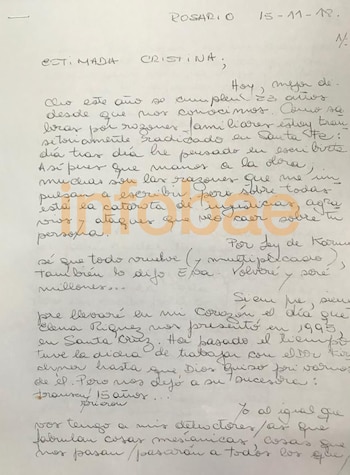 ROSARIO 15-11-18.
1/.
ESTIMADA CRISTINA;
Hoy, mejor di-
cho este año se cumplen 23 años
desde que nos conocimos. Como sa-
brás por razones familiares estoy tran
sitoriamente radicado en Santa Fe:
día tras día he pensado en escribirte
Así pues que manos a la obra,
muchas son las razones que me im-
pulsan a escribir pero sobre todas
está la catarata de injusticias, agra
vios, ataques que veo caer sobre tu
persona.
Por Ley de Karma
sé que todo vuelve (y multiplicado),
también lo dijo Eva. Volveré y seré
millones...
Siempre, siem
pre llevaré en mi corazón el día que
Elena Riquez nos presentó en 1995,
en Santa Cruz. Ha pasado el tiempo
tuve la dicha de trabajar con el Dr Kir
chner hasta que Dios quiso privarnos
de él. Pero nos dejó a su sucesora:
15 años...
Yo al igual que
vos tengo a mis detractores/as que
fabulan cosas mesiánicas, cosas que
nos pasan/pasarán a todos los que
infobae